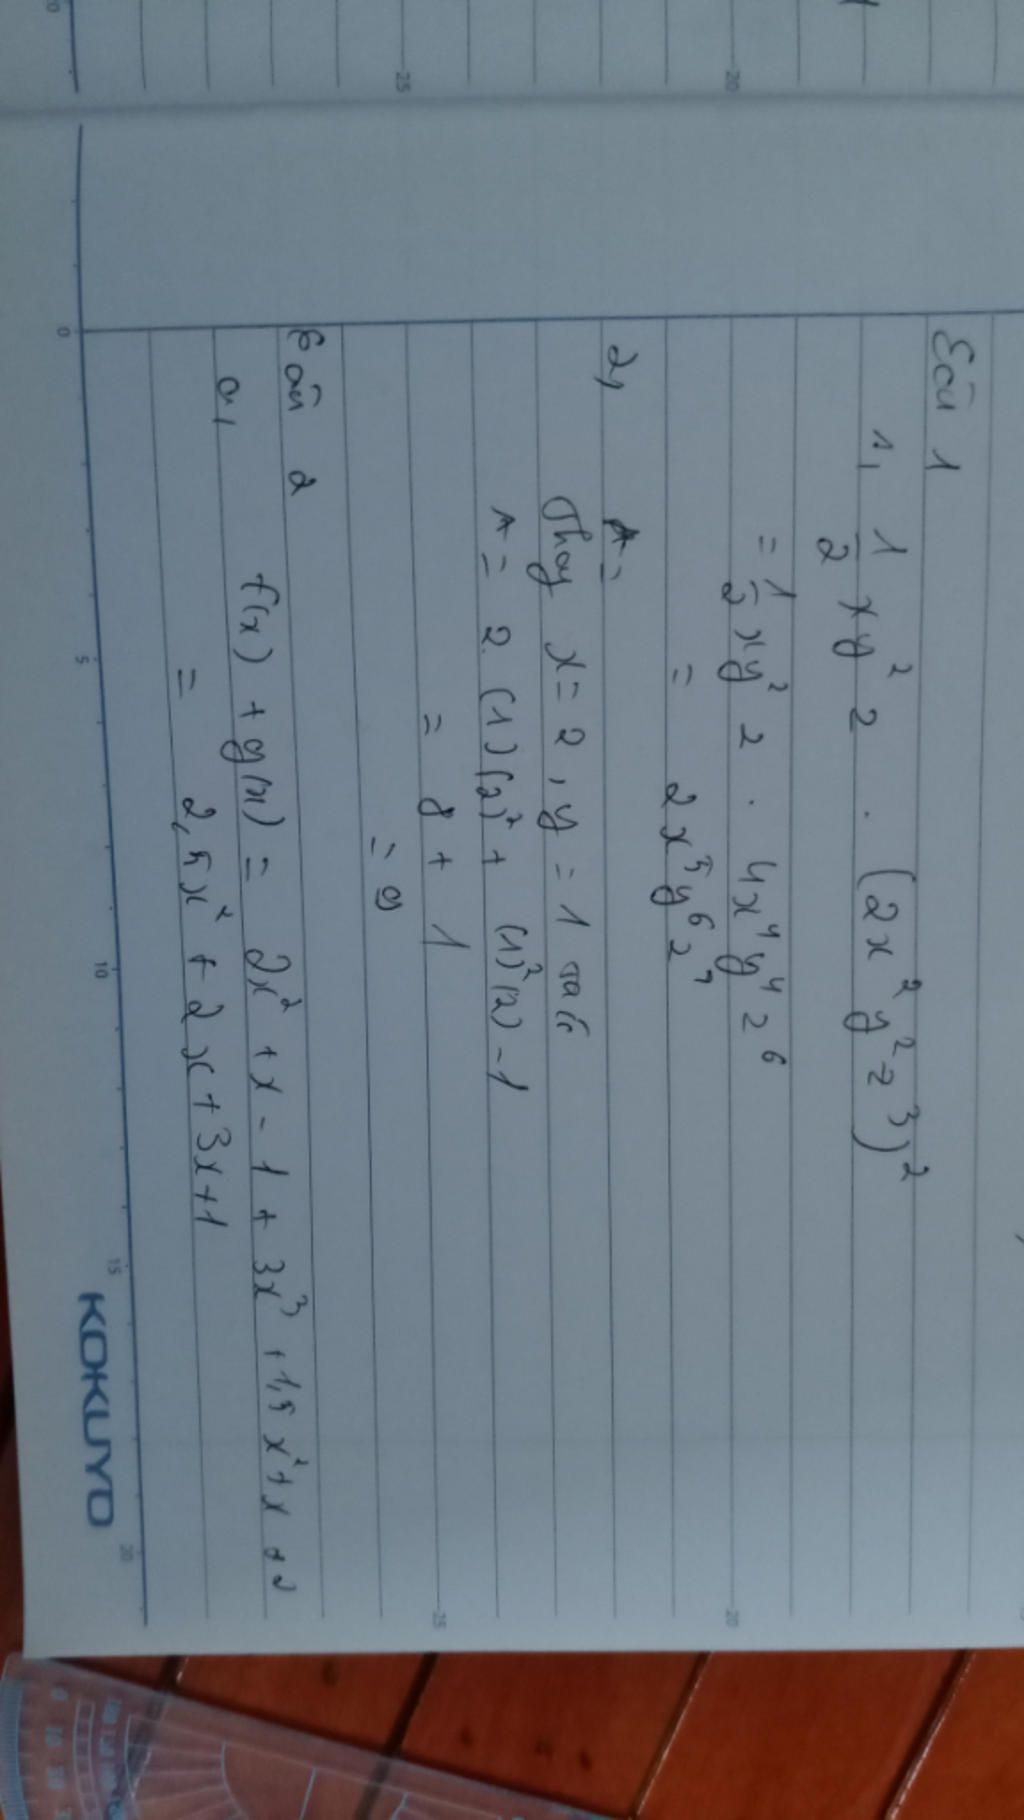 Bài 1
1, 1/2 xy² z . (2x²y²z³)²
= 1/2 xy² z . 4x⁴y⁴z⁶
= 2x⁵y⁶z⁷
2, A=
Thay x = 2, y = 1 ta có
A = 2.(1)(2)² + (1)²(2) - 1
= 8 + 1
= 9
Bài 2
a, f(x) + g(x) = 2x² + x - 1 + 3x³ + 1,5x² + x + 2
= 2,5x² + 2x + 3x + 1
KOKUYO
0
5
10
15
20
25
20
25
20